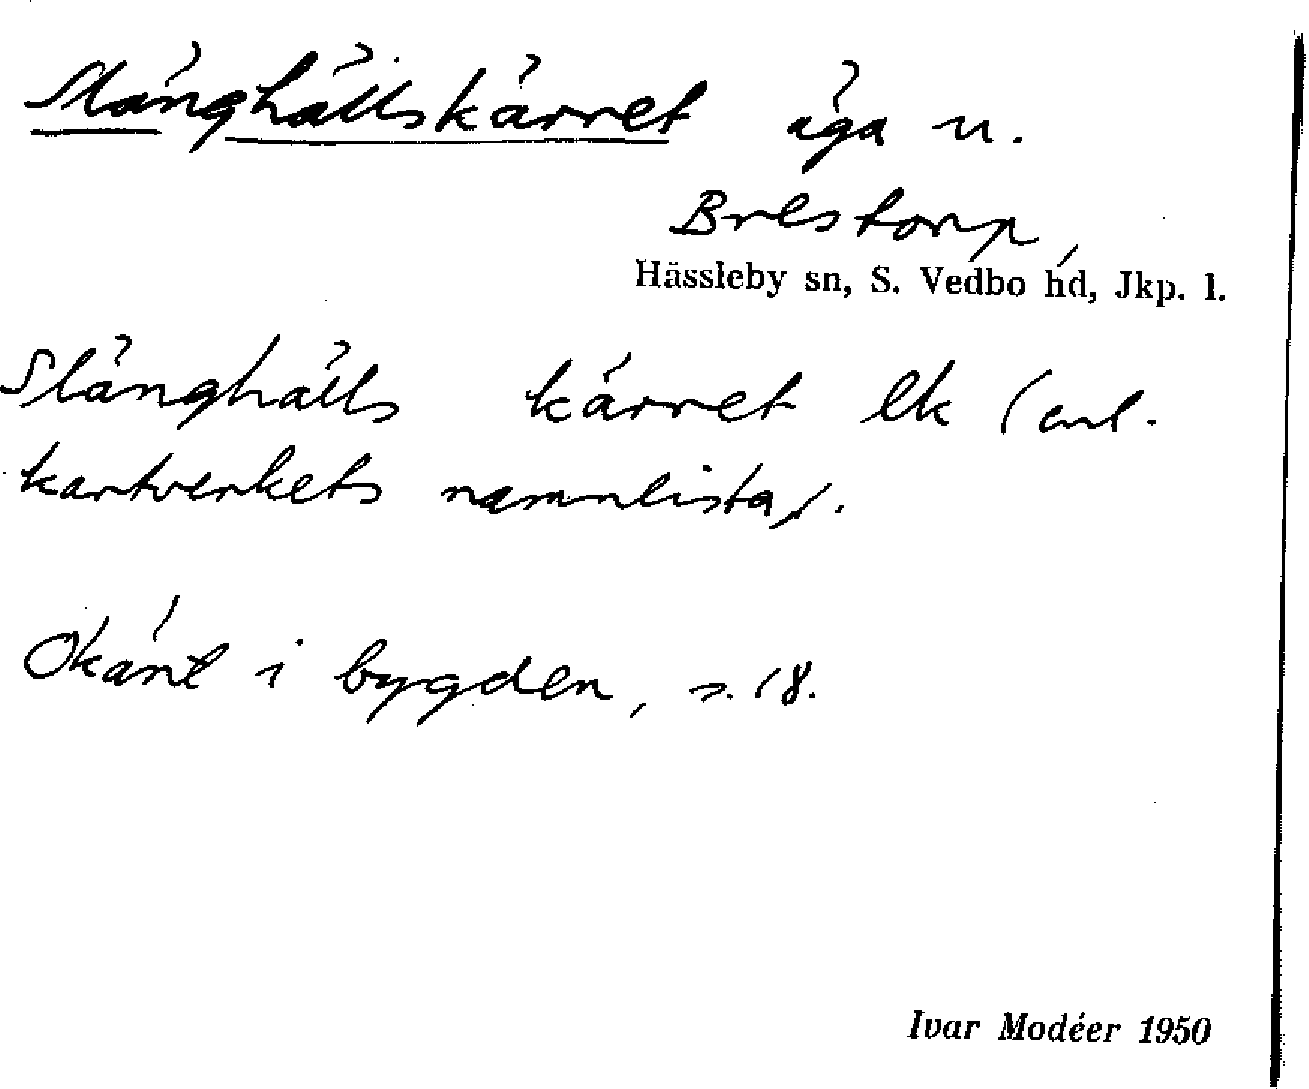 Slånghällskärret äga u.
Brestorp,
Hässleby sn, S. Vedbo hd, Jkp. l.
Slånghälls kärret ek (enl.
kartverkets namnlista).
Okänt i bygden, s. 18.
Ivar Modéer 1950